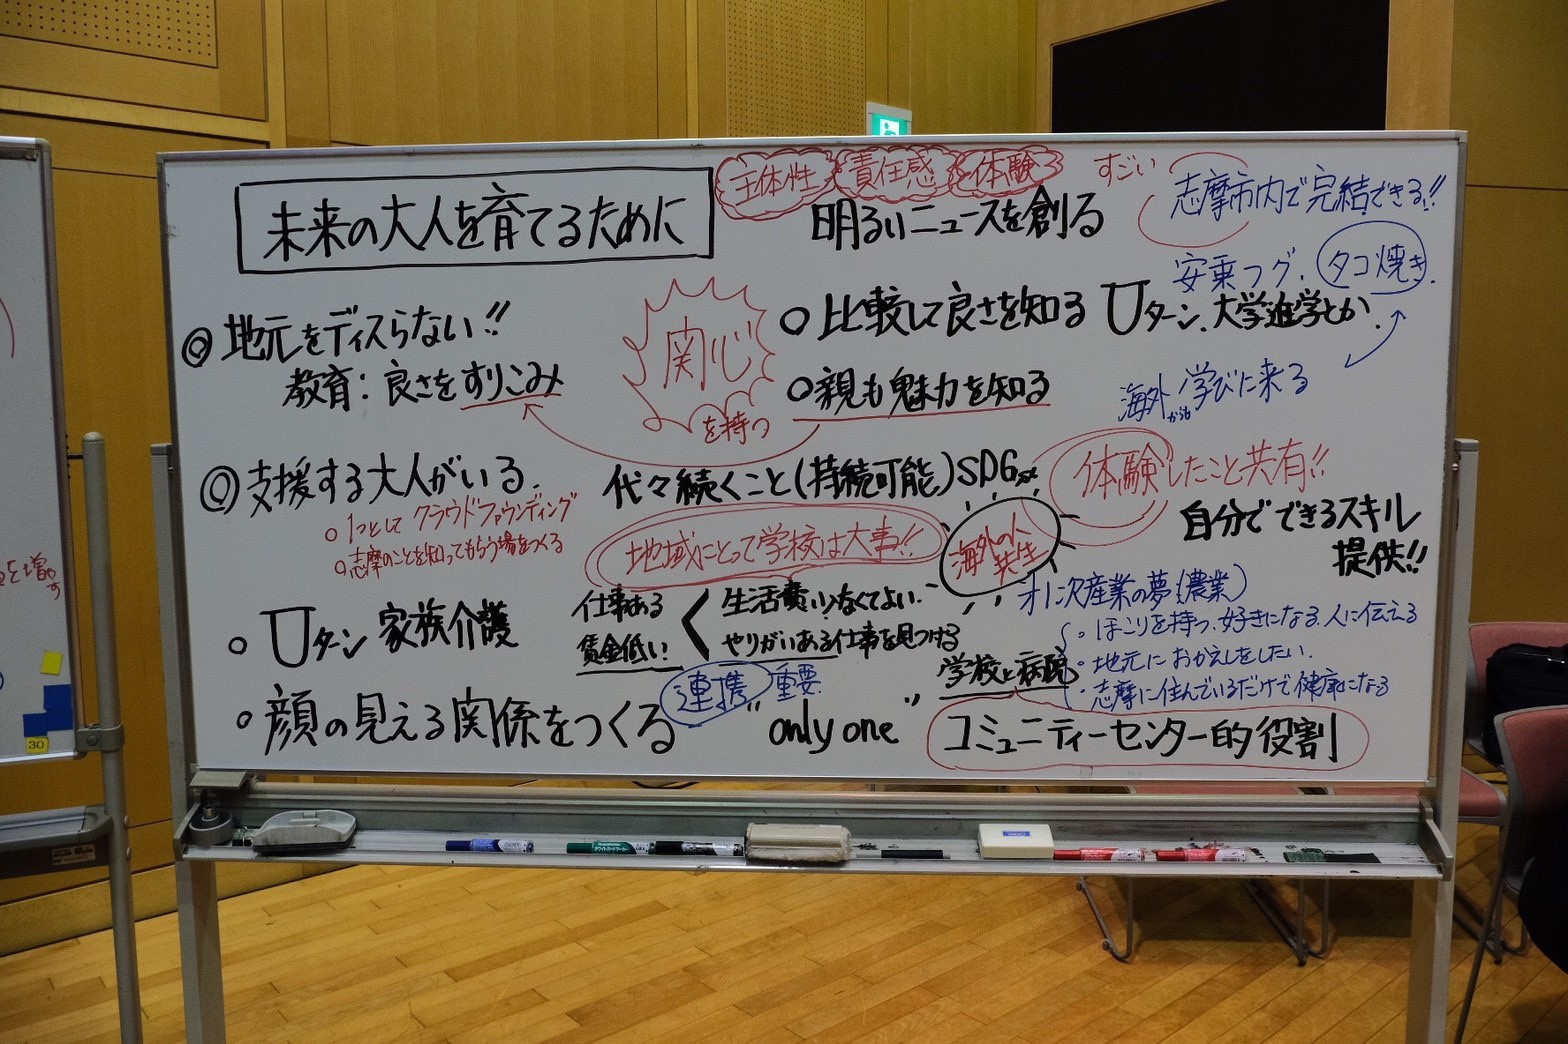 未来の大人を育てるために
主体性 責任感 体験
明るいニュースを創る
すごい
志摩市内で完結できる!!
安乗フグ. タコ焼き.
◎地元をディスらない!!
教育:良さをすりこみ
関心
を持つ
○比較して良さを知る Uターン、大学進学とか
○親も魅力を知る
海外からも学びに来る
◎支援する大人がいる.
○1つとして クラウドファウンディング
○志摩のことを知ってもらう場をつくる
代々続くこと(持続可能)SDGs
体験したこと共有!!
自分でできるスキル
提供!!
地域にとって学校は大事!!
海外の人
先生
○Uターン 家族介護
仕事ある
賃金低い
生活費いらなくてよい.
やりがいある仕事を見つける
学校と病院
オ1次産業の夢(農業)
・ほこりを持つ、好きになる、人に伝える
・地元におかえしをしたい.
・志摩に住んでいるだけで健康になる
○顔の見える関係をつくる
連携 重要
"only one"
コミュニティーセンター的役割
30